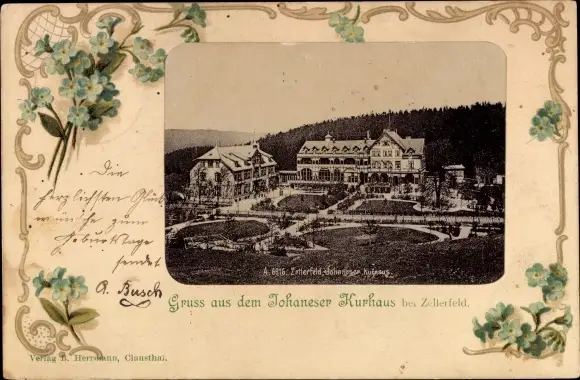 Die
herzlichsten Glück
wünsche zum
Geburtstage
sendet
A. Busch
A. 6816. Zellerfeld-Johaneser Kurhaus.
Gruss aus dem Johaneser Kurhaus bei Zellerfeld.
Verlag B. Herrmann, Clausthal.